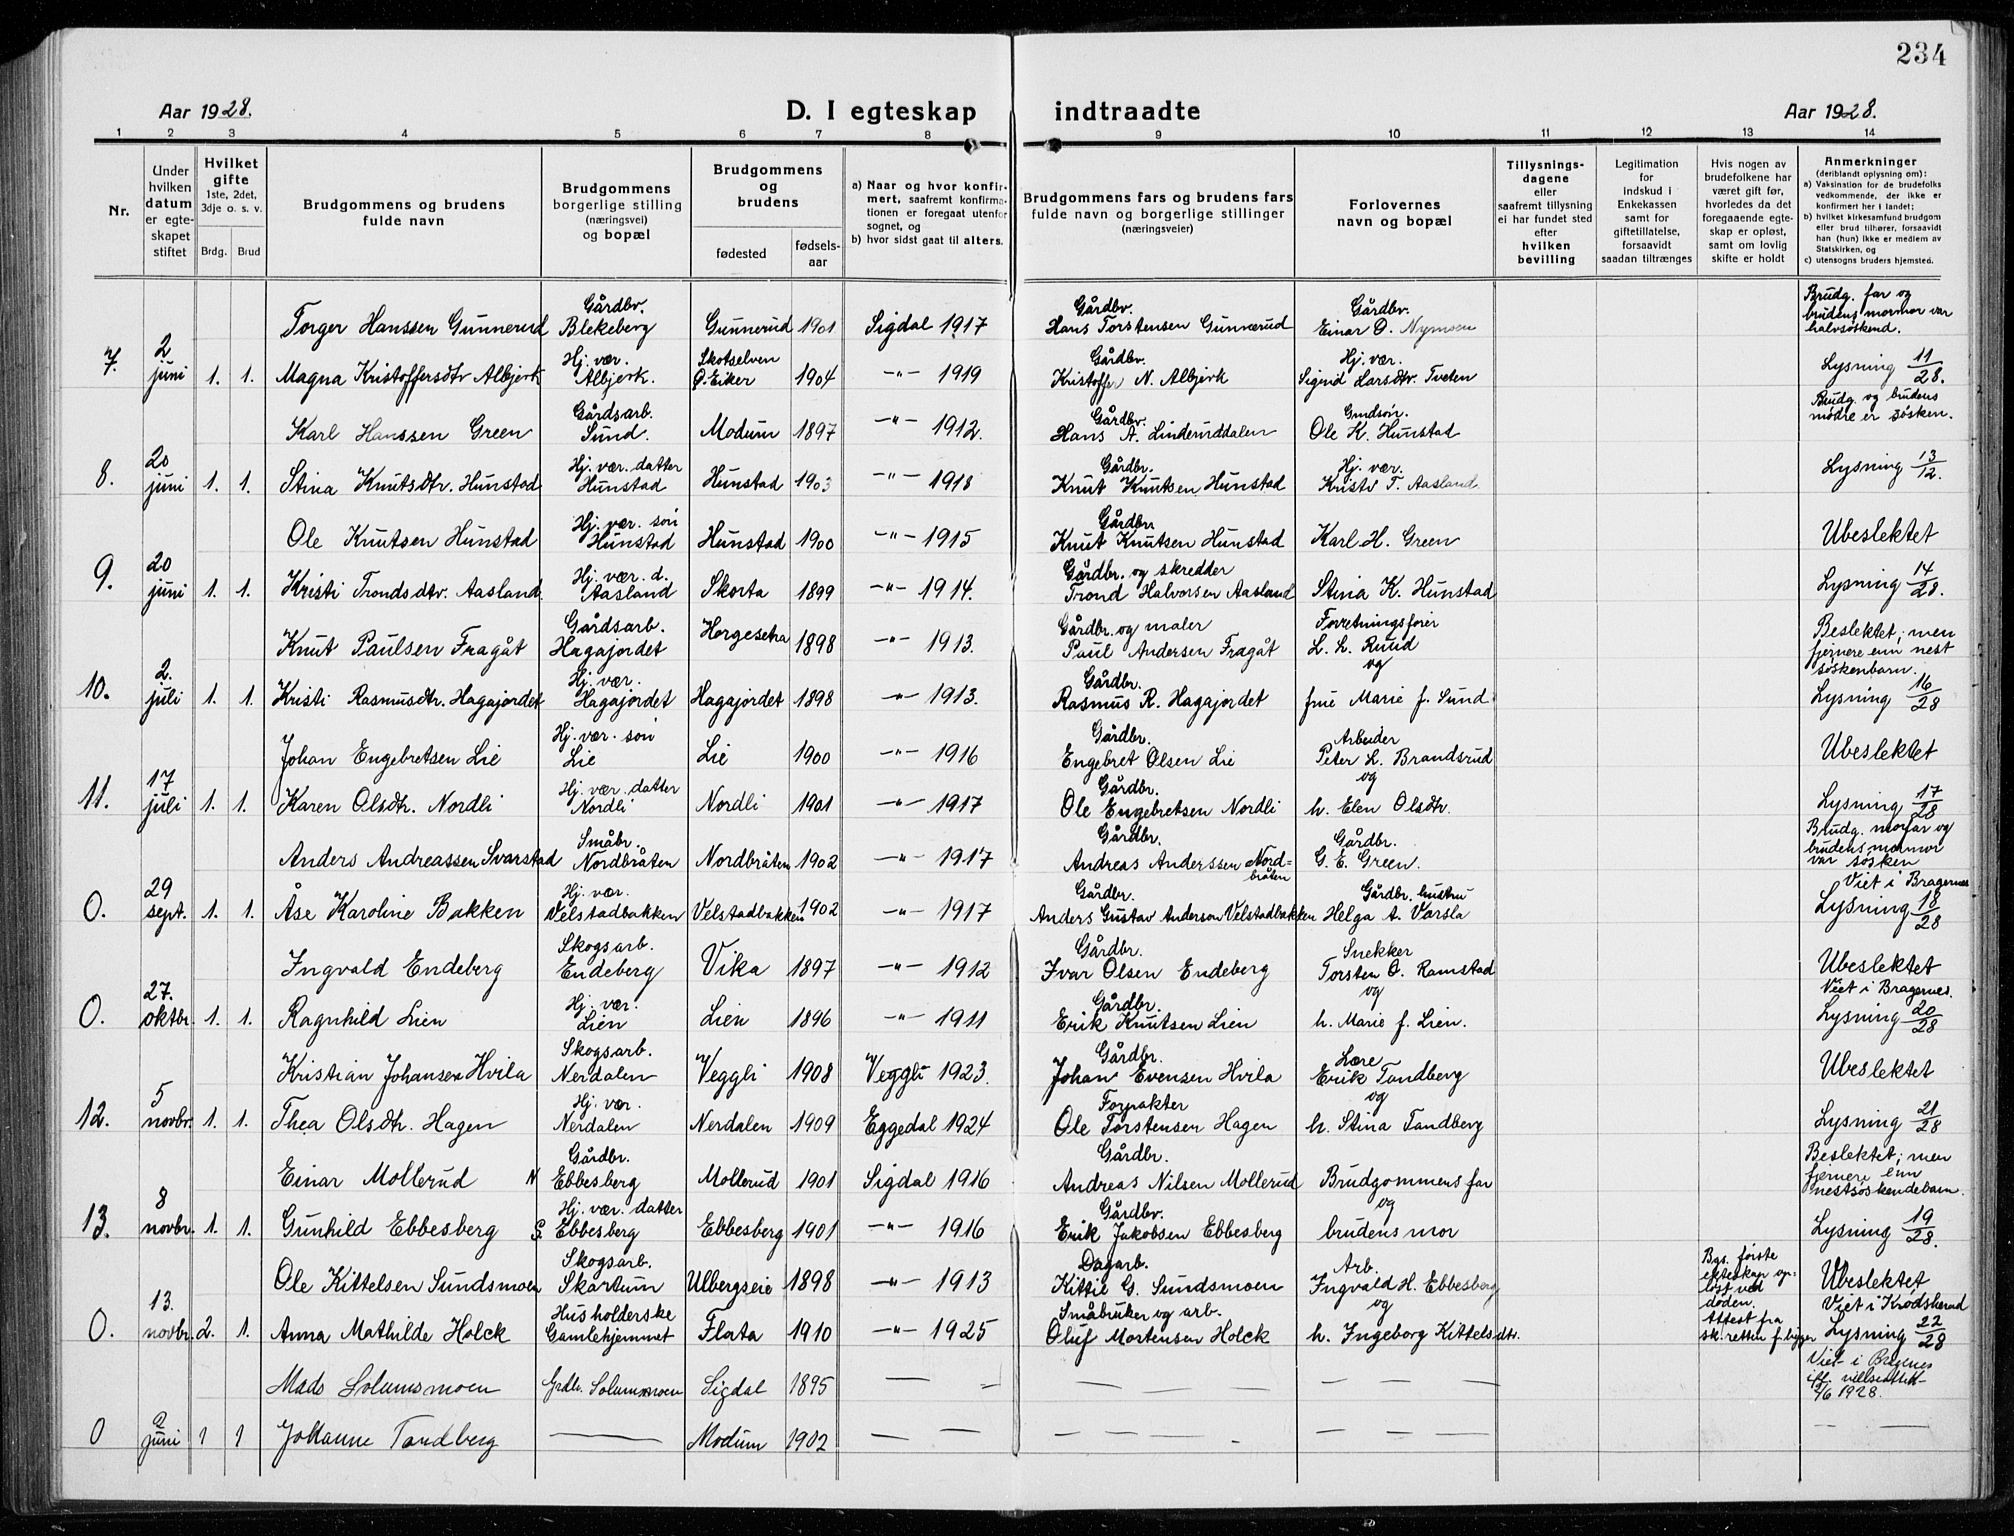 234
Aar 1928.
D. I egteskap
indtraadte
Aar 1928.
1 2 3 4 5 6 7 8 9 10 11 12 13 14
Nr.
Under hvilken datum er egteskapet stiftet
Hvilket gifte 1ste, 2det, 3dje o. s. v.
Brdg. Brud
Brudgommens og brudens fulde navn
Brudgommens borgerlige stilling (næringsvei) og bopæl
Brudgommens og brudens
fødested
fødsels-aar
a) Naar og hvor konfirmert, saafremt konfirmationen er foregaat utenfor sognet, og
b) hvor sidst gaat til alters.
Brudgommens fars og brudens fars fulde navn og borgerlige stillinger (næringsveier)
Forlovernes navn og bopæl
Tillysningsdagene eller saafremt tillysning ei har fundet sted efter hvilken bevilling
Legitimation for indskud i Enkekassen samt for giftetillatelse, forsaavidt saadan tiltrænges
Hvis nogen av brudefolkene har været gift før, hvorledes da det foregaaende egteskap er opløst, samt om lovlig skifte er holdt
Anmerkninger (deriblandt oplysning om):
a) Vaksination for de brudefolks vedkommende, der ikke er konfirmert her i landet;
b) hvilket kirkesamfund brudgom eller brud tilhører, forsaavidt han (hun) ikke er medlem av Statskirken, og
c) utensogns bruders hjemsted.
Torger Hanssen Gunnerud Gårdbr. Blekeberg Gunnerud 1901 Sigdal 1917 Gårdbr. Hans Torstensen Gunnerud Gårdbr. Einar O. Nymoen Brudg. far og brudens mormor var halvsøskend.
7. 2 juni 1. 1. Magna Kristoffersdtr Albjerk Hj. vær. Albjerk. Skotselven Ø. Eiker 1904 -"- 1919 Gårdbr. Kristoffer N. Albjerk Hj. vær. Sigrid Larsdtr. Tveten Lysning 11/28.
Karl Hanssen Green Gårdsarb. Sund. Modum 1897 -"- 1912. Gårdbr. Hans A. Linderuddalen Ole K. Hunstad Brudg. og brudens mødre er søsken.
8. 20 juni 1. 1. Stina Knutsdtr. Hunstad Hj. vær. datter Hunstad Hunstad 1903 -"- 1918 Gårdbr. Knut Knutsen Hunstad Hj. vær. Kristi T. Aasland Lysning 13/12.
Ole Knutsen Hunstad Hj. vær. søn Hunstad Hunstad 1900 -"- 1915 Gårdbr Knut Knutsen Hunstad Karl H. Green Ubeslektet
9. 20 juni 1. 1. Kristi Trondsdtr. Aasland. Hj. vær. d. Aasland Skorta 1899 -"- 1914. Gårdbr. og skredder Trond Halvorsen Aasland Stina K. Hunstad Lysning 14/28.
Knut Paulsen Fragåt Gårdsarb. Hagajordet Horgesetra 1898 -"- 1913. Gårdbr. og maler Paul Andersen Fragåt Forretningsfører L. L. Ruud og Beslektet; men fjernere enn nest søskenbarn.
10. 2. juli 1. 1. Kristi Rasmusdtr. Hagajordet Hj. vær. Hagajordet Hagajordet 1898 -"- 1913. Gårdbr. Rasmus R. Hagajordet frue Marie f. Sund. Lysning 16/28
Johan Engebretsen Lie Hj. vær. søn Lie Lie 1900 -"- 1916 Gårdbr. Engebret Olsen Lie Arbeider Peter L. Brandsrud og Ubeslektet
11. 17 juli 1. 1. Karen Olsdtr. Nordli Hj. vær. datter Nordli Nordli 1901 -"- 1917 Gårdbr. Ole Engebretsen Nordli h. Elen Olsdtr. Lysning 17/28
Anders Andreassen Svarstad Småbr. Nordbråten Nordbråten 1902 -"- 1917 Gårdbr. Andreas Anderssen Nord=bråten Gårdbr. G. E. Green. Brudg. morfar og brudens mormor var søsken
0. 29 sept. 1. 1. Åse Karoline Bakken Hj. vær. Velstadbakken Velstadbakken 1902 -"- 1917 Gårdbr. Anders Gustav Anderson Velstadbakken Gårdbr. hustru Helga A. Varsla Viet i Bragernes Lysning 18/28
Ingvald Endeberg Skogsarb. Endeberg Vika 1897 -"- 1912 Gårdbr. Ivar Olsen Endeberg Snekker Torsten O. Ramstad og Ubeslektet
0. 27. oktbr. 1. 1. Ragnhild Lien Hj. vær. Lien Lien 1896 -"- 1911 Gårdbr. Erik Knutsen Lien h. Marie f. Lien. Viet i Bragernes. Lysning 20/28
Kristian Johansen Hvila Skogsarb. Nerdalen Veggli 1908 Veggli 1923. Gårdbr. Johan Evensen Hvila Lære Erik Tandberg og Ubeslektet
12. 5 novbr. 1. 1. Thea Olsdtr. Hagen Hj. vær. Nerdalen Nerdalen 1909 Eggedal 1924 Forpakter Ole Torstensen Hagen h. Stina Tandberg Lysning 21/28
Einar Mollerud N Gårdbr. Ebbesberg Mollerud 1901 Sigdal 1916 Gårdbr. Andreas Nilsen Mollerud Brudgommens far og Beslektet; men fjernere enn nestsøskendebarn.
13. 8 novbr. 1. 1. Gunhild Ebbesberg S. Hj. vær. datter Ebbesberg Ebbesberg 1901 -"- 1916 Gårdbr. Erik Jakobsen Ebbesberg brudens mor Lysning 19/28.
Ole Kittelsen Sundsmoen Skogsarb. Skartum Ulbergseie 1898 -"- 1913 Dagarb. Kittil G. Sundsmoen Arb. Ingvald H. Ebbesberg og Bgs. første ekteskap opløst ved døden. Ubeslektet
0. 13. novbr. 2. 1. Anna Mathilde Holck Husholderske Gamlehjemmet Flata 1910 -"- 1925 Småbruker og arb. Oluf Mortensen Holck h. Ingeborg Kittelsdtr. Attest fra sk.retten Viet i Krødsherad Lysning 22/28
Mads Solumsmoen Grdbr. Solumsmoen Sigdal 1895 — — — — — — Viet i Bragenes 2/6 1928.
0 2 juni 1 1 Johanne Tandberg — Modum 1902 — — — — — —